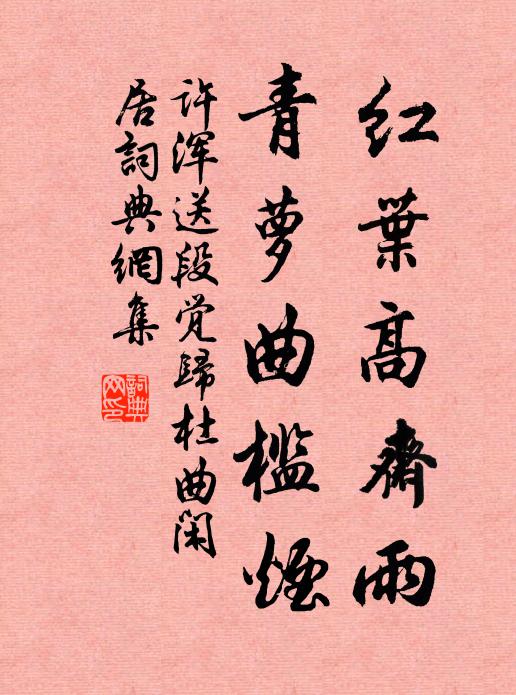 红葉高齋雨
青萝曲槛煙
许浑送段觉歸杜曲闲
居詞典網集
詞典
网印